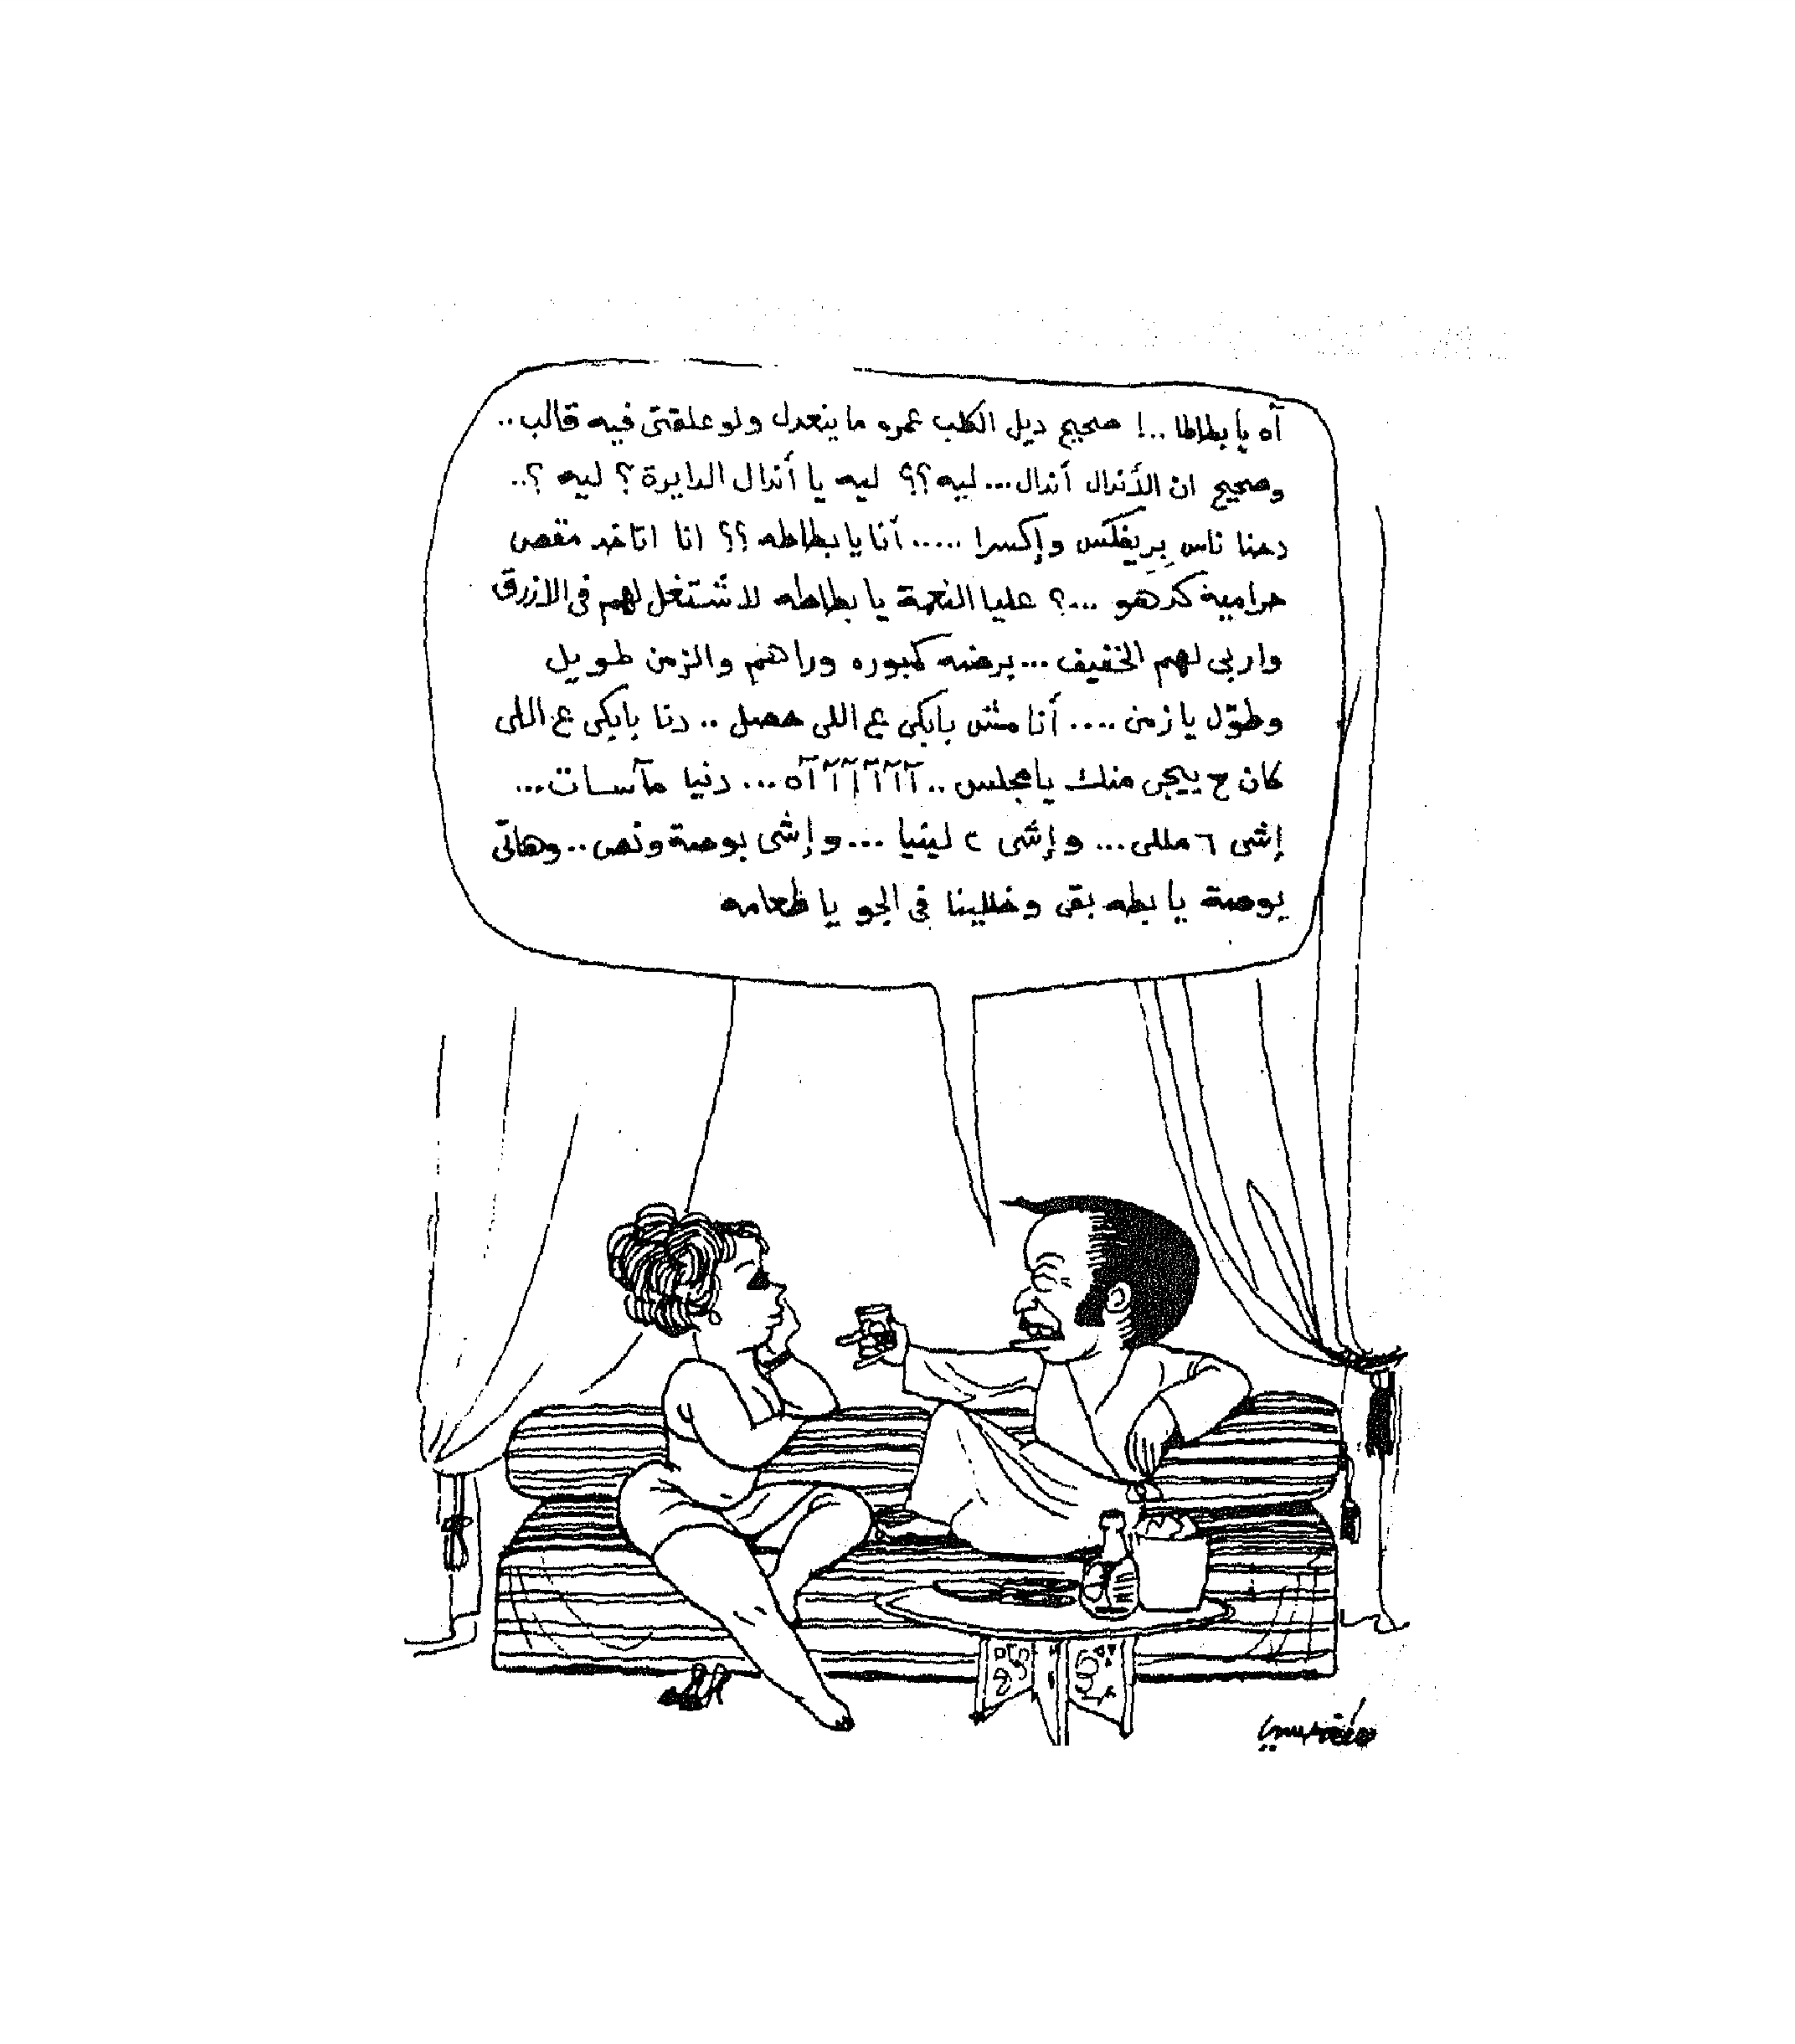 آه يا بطاطا ..! صحيح ديل الكلب عمره ما ينعدل ولو علقتى فيه قالب ..
وصحيح ان الأندال أندال ... ليه ؟؟ ليه يا أندال الدايرة ؟ ليه ؟ ..
دحنا ناس بِرِيفكس وإكسرا ..... أنا يا بطاطه ؟؟ انا اتاخد مقص
حرامية كدهو ...؟ عليا النعمة يا بطاطه لاشتغل لهم فى الازرق
واربى لهم الخفيف ... برضه كمبوره وراهم والزمن طويل
وطوّل يا زمن .... أنا مش بابكى ع اللى حصل .. دنا بابكى ع اللى
كان ح ييجى منك يا مجلس .. آآآآآآه ... دنيا مآسات ...
إشى ٦ مللى ... وإشى ٢ لينيا ... وإشى بوصة ونص .. وهاتى
بوصة يا بطه بقى وخللينا فى الجو يا طعامه